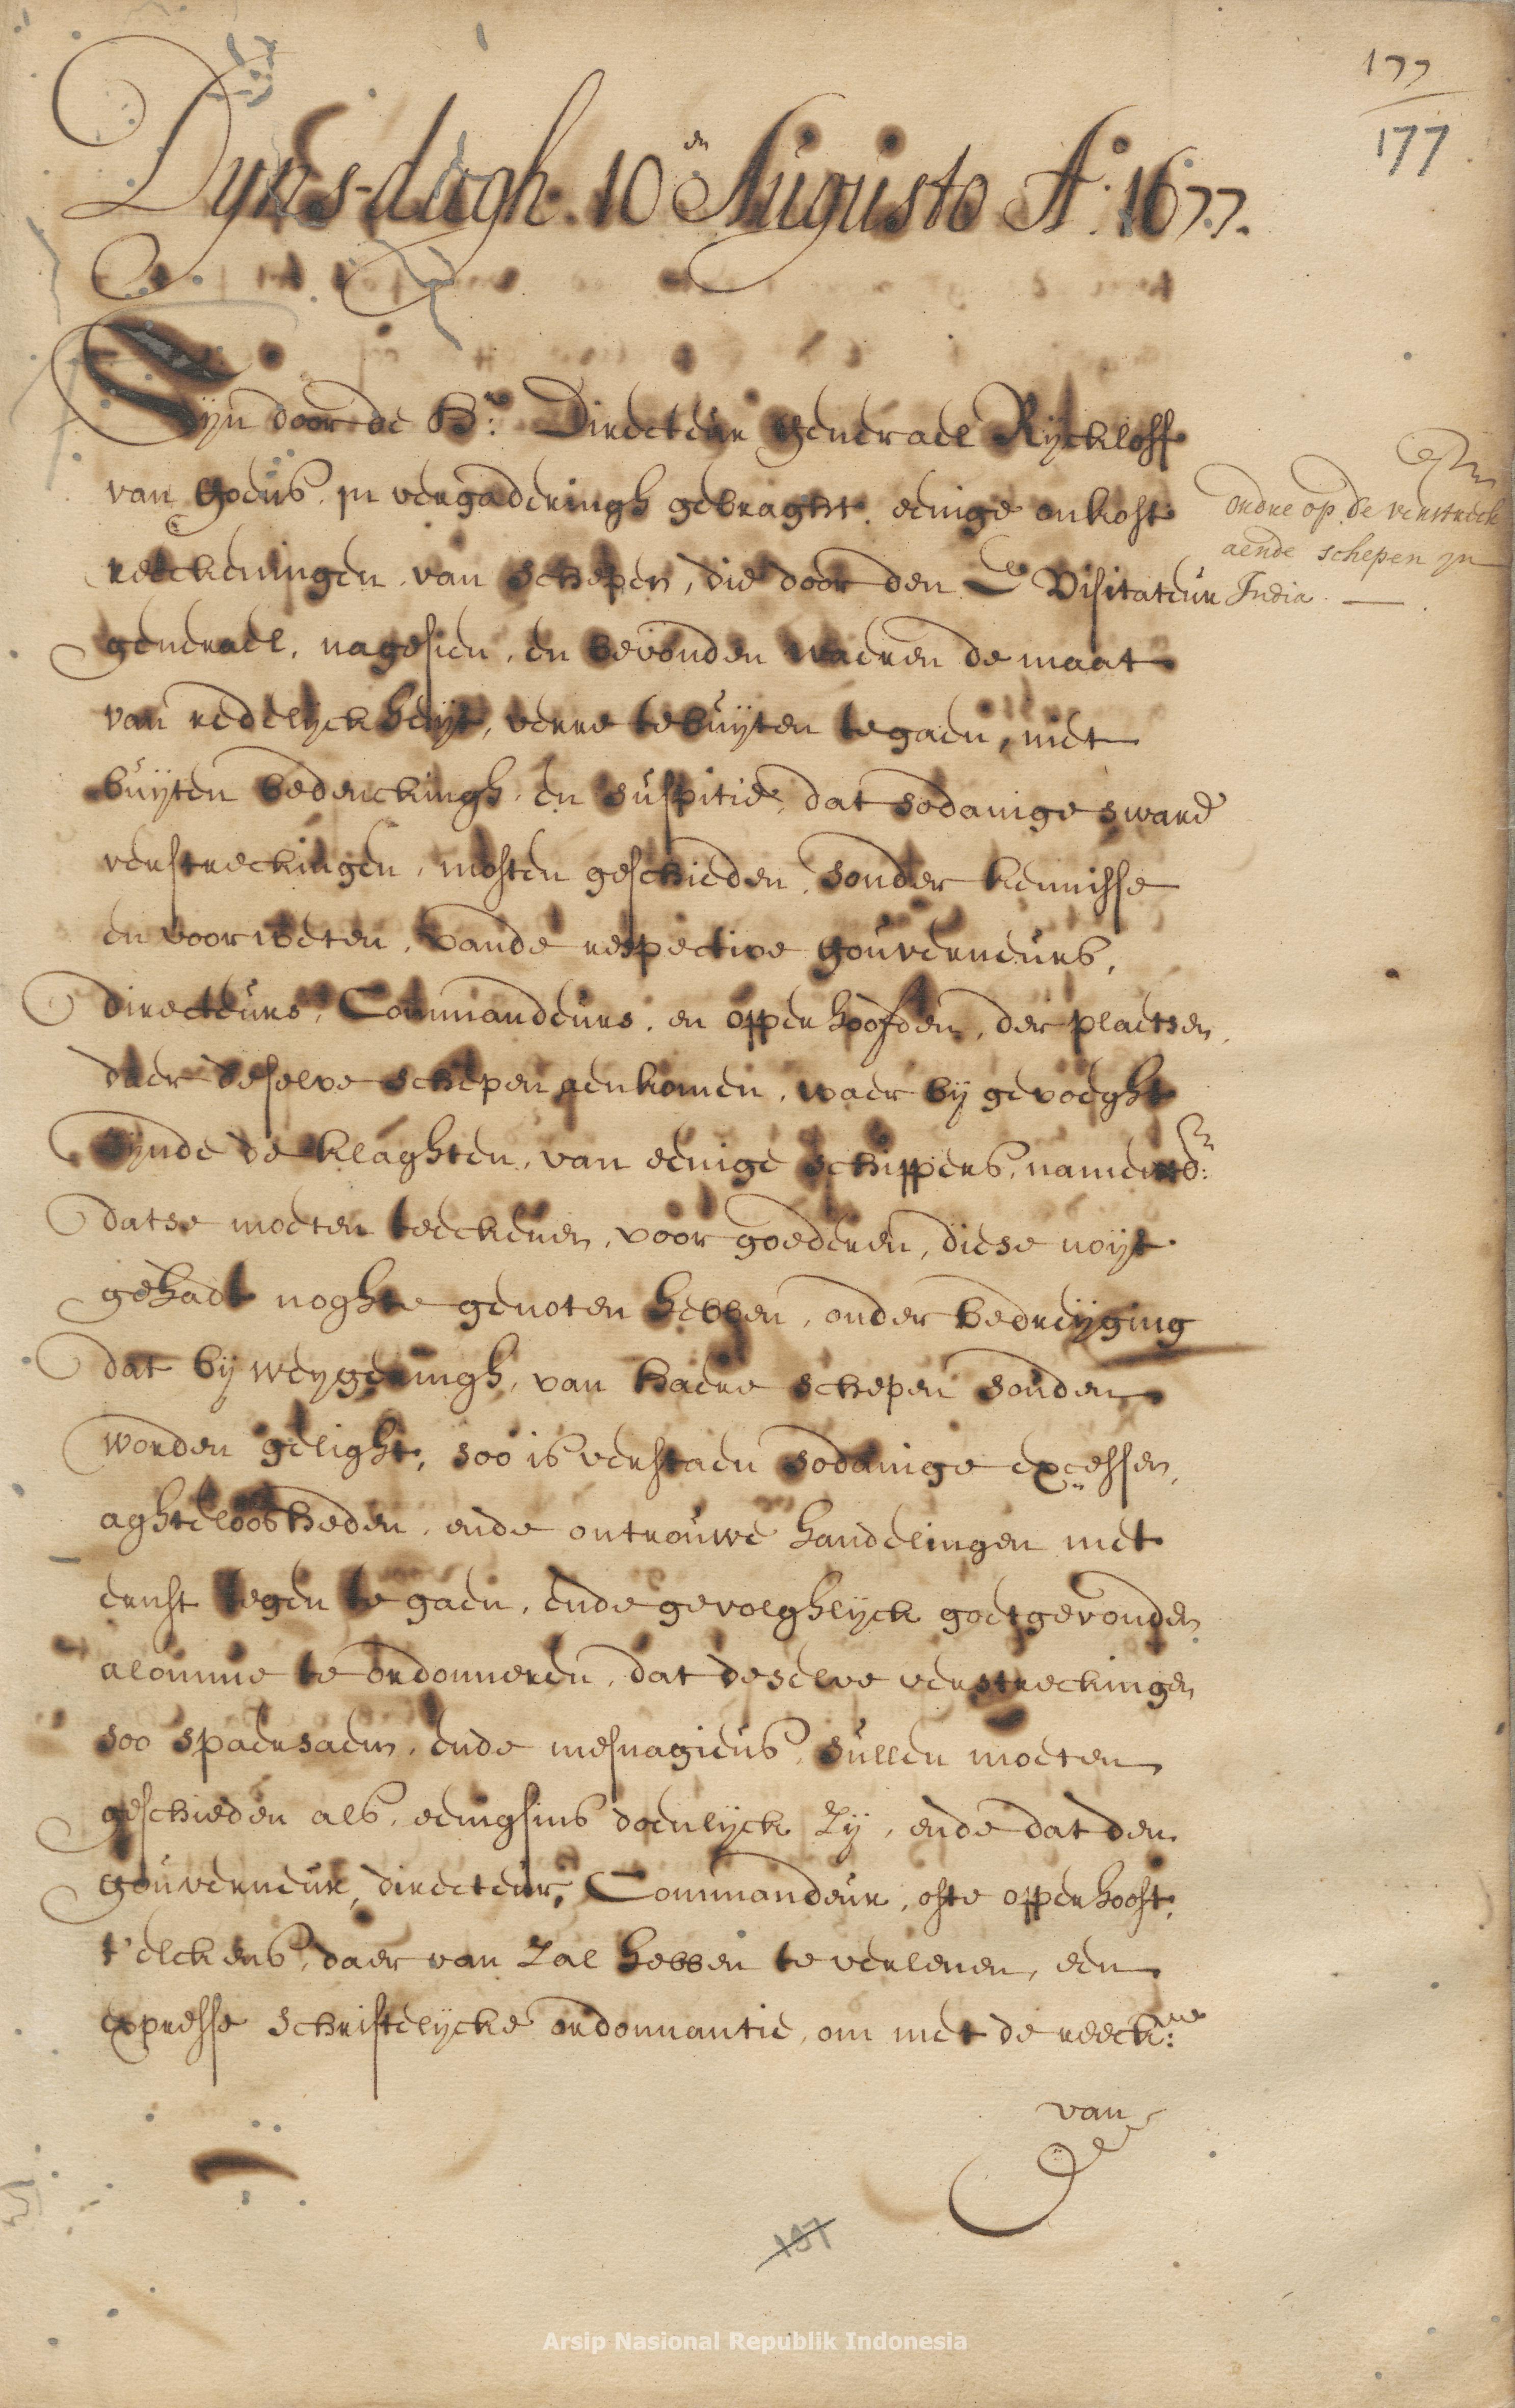 177
177
Dynsdagh. 10en Augusto Ao. 1677.
Zyn door de Hr: Directeur generael Ryckloff
van Goens, in vergaderingh gebraght, eenige onkost
reeckeningen van schepen, die door den E Visitateur
generael, nagesien, en bevonden waeren de maat
van redelyckheyt, verre te buyten te gaen, niet
buyten bedenckingh en suspitie, dat sodanige sware
verstreckingen, mosten geschieden, sonder kennisse
en voorweten, vande respective gouverneurs,
directeurs, Commandeurs, en opperhoofden, der plaetsen,
daer deselve schepen aenkomen, waer by gevoeght
synde de klaghten, van eenige schippers,
datse moeten teeckenen, voor goederen, diese noyt
gehadt noghte genoten hebben, onder bedreyging
dat by weygeringh, van haere schepen souden
worden gelight, soo is verstaen sodanige excessen,
aghteloosheden, ende ontrouwe handelingen met
ernst tegen te gaen, ende gevolghlyck goetgevonden
alomme te ordonneren, dat deselve verstreckingen
soo spaersaem, ende mesnagieus, sullen moeten
geschieden als, eenigsins doenlyck zy, ende dat den
gouverneur, directeur, Commandeur, ofte opperhooft,
t'elckens, daer van zal hebben te verlenen, een
expresse schriftelycke ordonnantie, om met de reeck:
van
ordre op de verstreck
aende schepen in
India.
107
Arsip Nasional Republik Indonesia